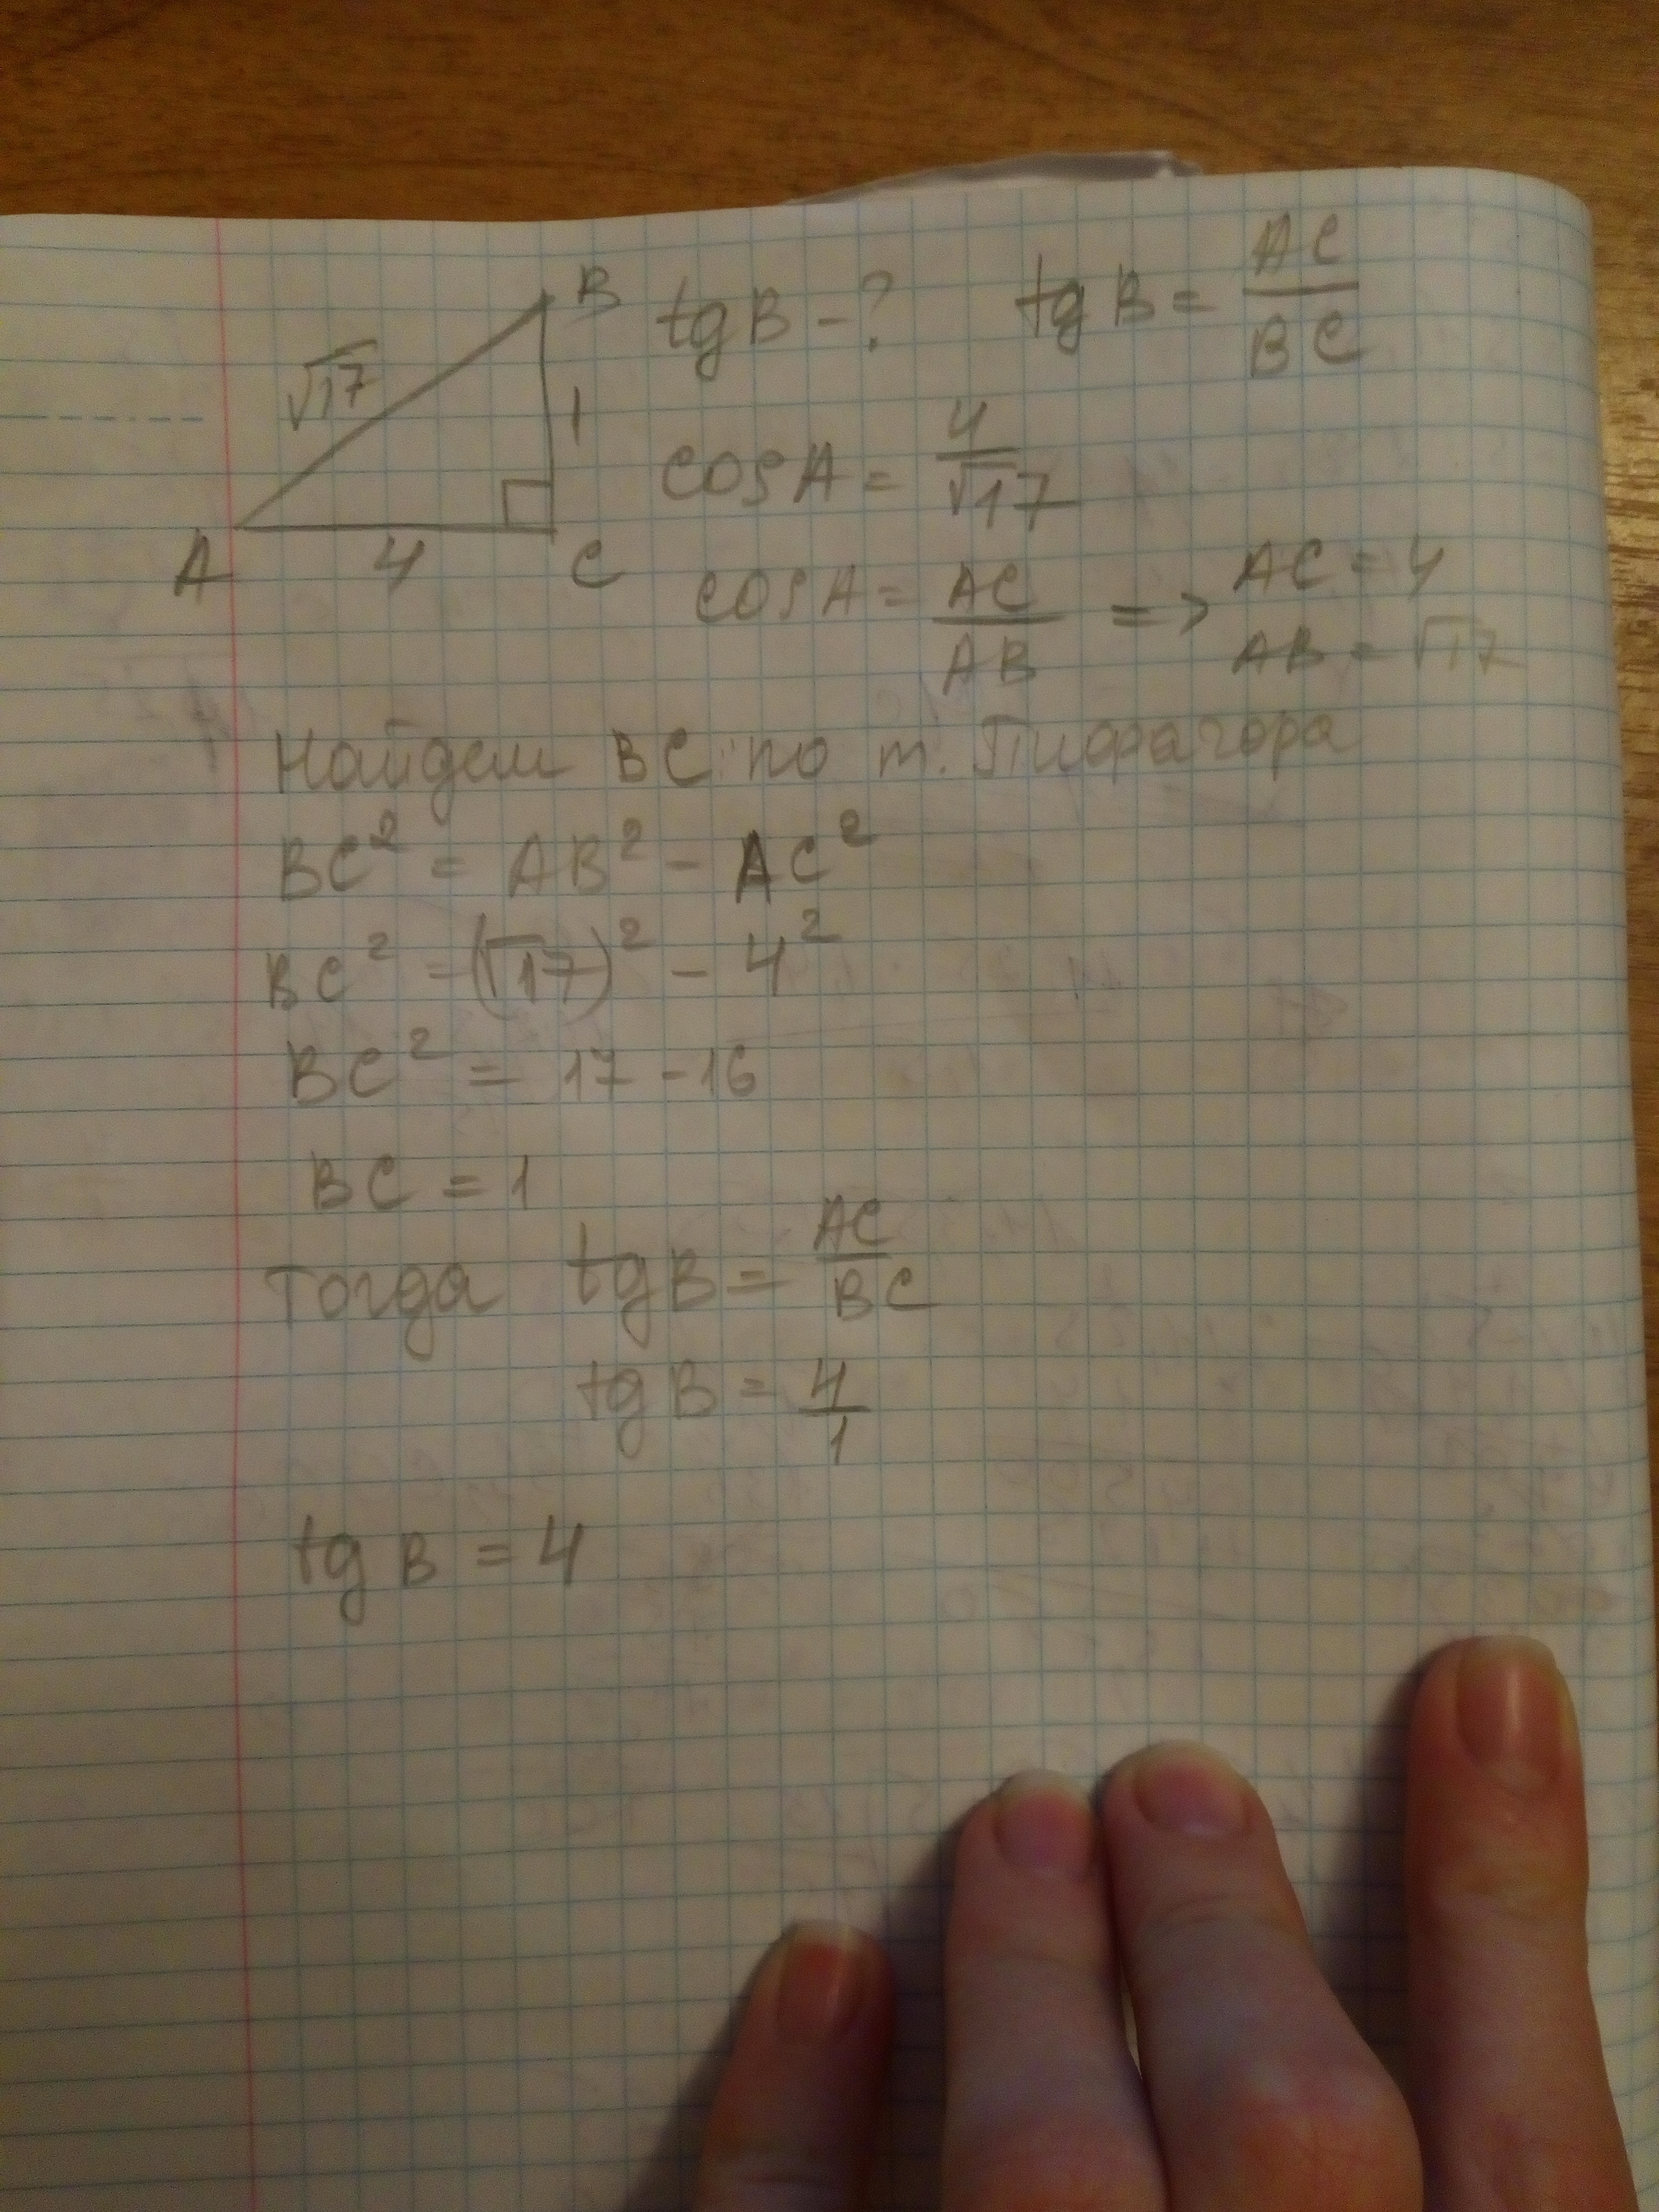 B tg B - ? tg B = AC/BC
√17
1
cos A = 4/√17
A 4 C
cos A = AC/AB => AC = 4
AB = √17
Найдем BC по т. Пифагора
BC² = AB² - AC²
BC² = (√17)² - 4²
BC² = 17 - 16
BC = 1
Тогда tg B = AC/BC
tg B = 4/1
tg B = 4